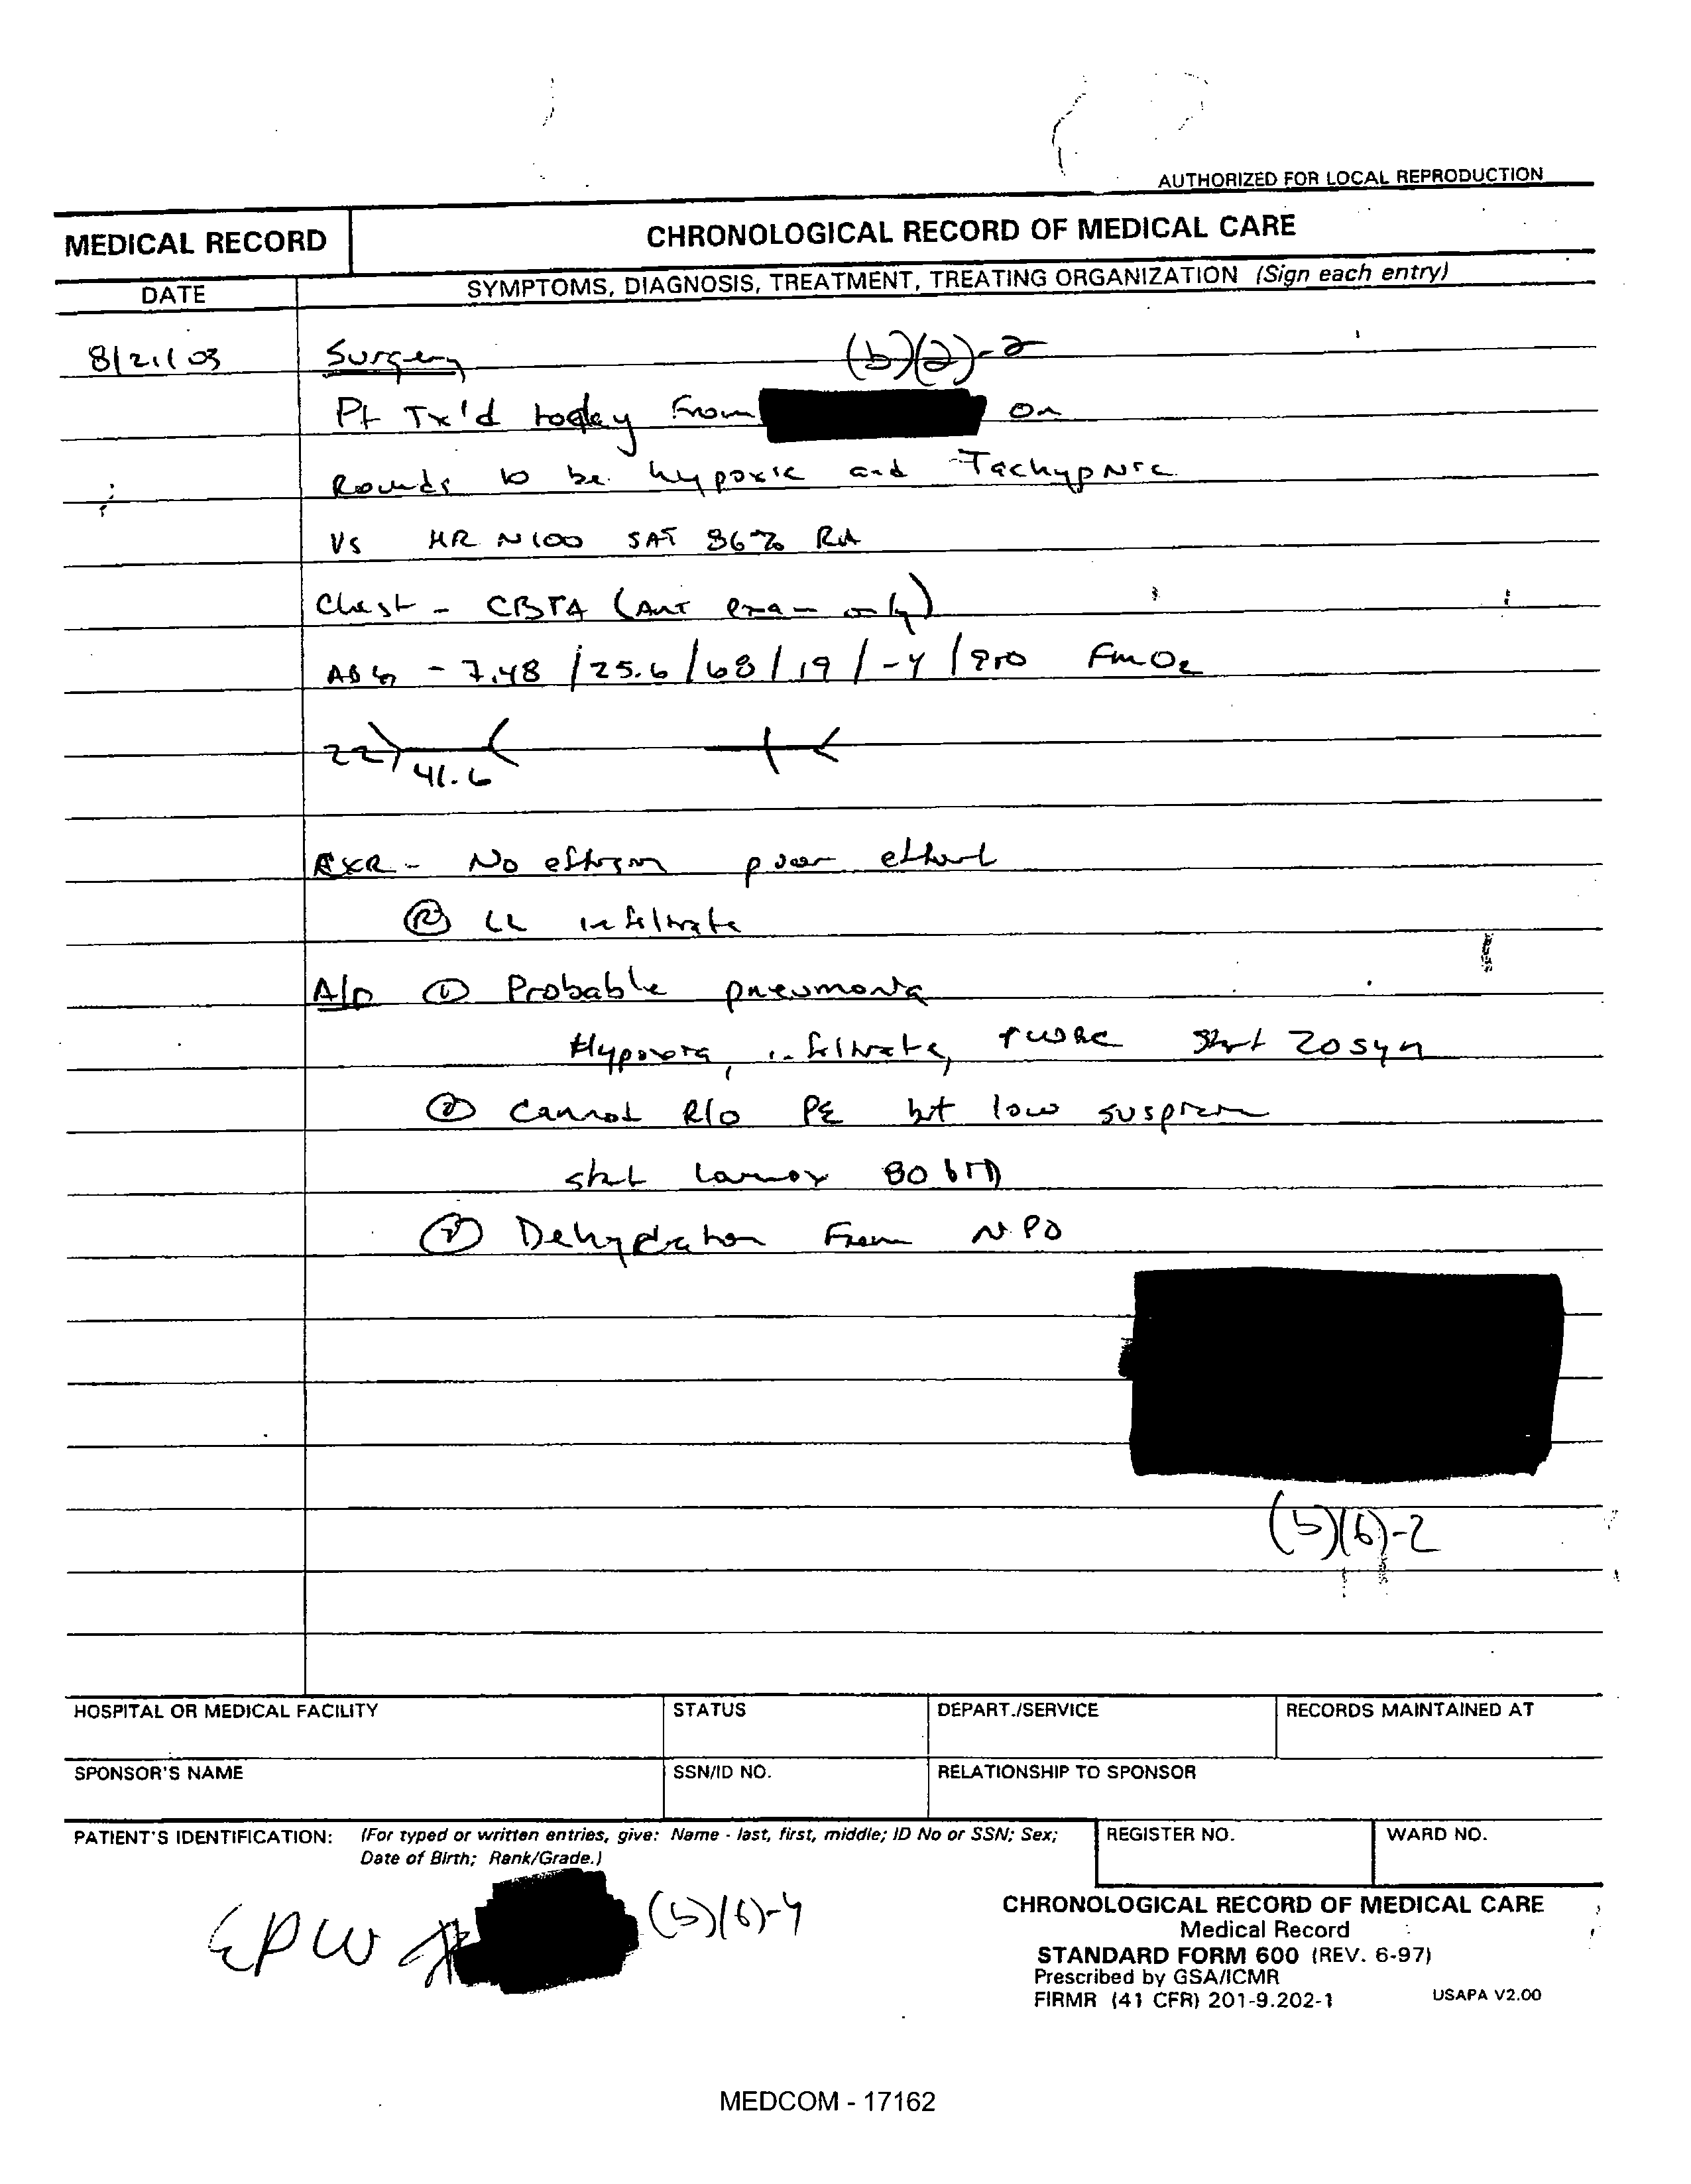 AUTHORIZED FOR LOCAL REPRODUCTION
MEDICAL RECORD
CHRONOLOGICAL RECORD OF MEDICAL CARE
DATE
SYMPTOMS, DIAGNOSIS, TREATMENT, TREATING ORGANIZATION (Sign each entry)
8/21/03 Surgery (b)(2)-2
Pt Tx'd today From on
Rounds to be hypoxic and Tachypnic
VS HR ~100 SAT 86% RA
Chest - CBTA (Ant exam only)
ABG - 7.48 /25.6/68/19/-4/ FmO2
22 41.6
CXR - No effusion poor effort
R LL infiltrate
A/P 1 Probable pneumonia
Hypoxia, infiltrate, ↑WBC Start Zosyn
2 Cannot R/O PE but low suspicion
start Lovnox 80 BID
3 Dehydration From NPO
(b)(6)-2
HOSPITAL OR MEDICAL FACILITY
STATUS
DEPART./SERVICE
RECORDS MAINTAINED AT
SPONSOR'S NAME
SSN/ID NO.
RELATIONSHIP TO SPONSOR
PATIENT'S IDENTIFICATION: (For typed or written entries, give: Name - last, first, middle; ID No or SSN; Sex;
Date of Birth; Rank/Grade.)
REGISTER NO.
WARD NO.
EPW # (b)(6)-4
CHRONOLOGICAL RECORD OF MEDICAL CARE
Medical Record
STANDARD FORM 600 (REV. 6-97)
Prescribed by GSA/ICMR
FIRMR (41 CFR) 201-9.202-1
USAPA V2.00
MEDCOM - 17162